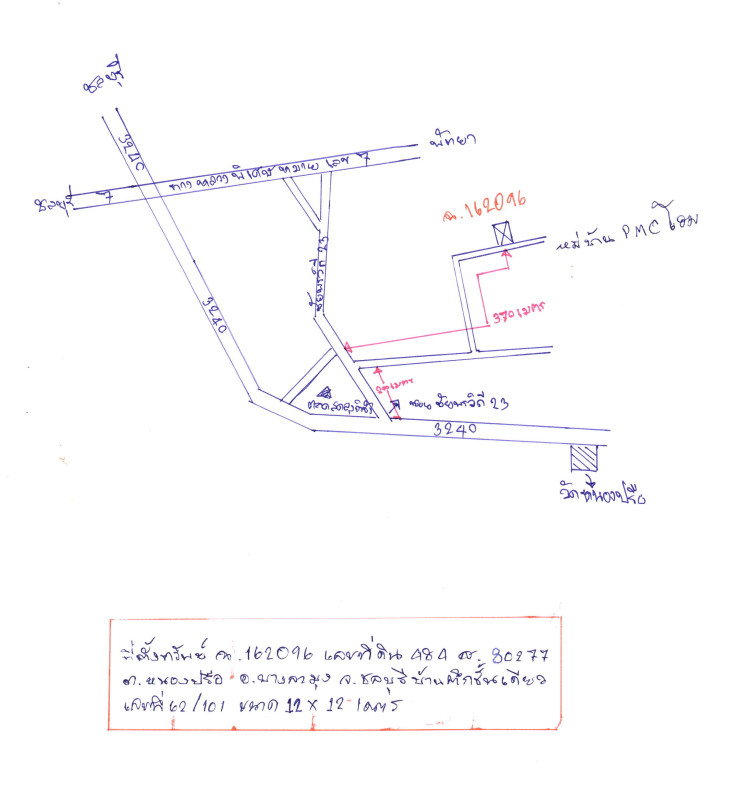 ชลบุรี
3240
ทางหลวงพิเศษหมายเลข 7
พัทยา
ชลบุรี
7
ฉ.162096
หมู่บ้าน PMC โฮม
ชัยพรวิถี 23
3240
370 เมตร
เมตร
ถนน ชัยพรวิถี 23
3240
วัดหนองปรือ
ที่ตั้งทรัพย์ ฉ.162096 เลขที่ดิน 484 ส. 80277
ต.หนองปรือ อ.บางละมุง จ.ชลบุรี บ้านตึกชั้นเดียว
เลขที่ 62/101 ขนาด 12 x 12 เมตร